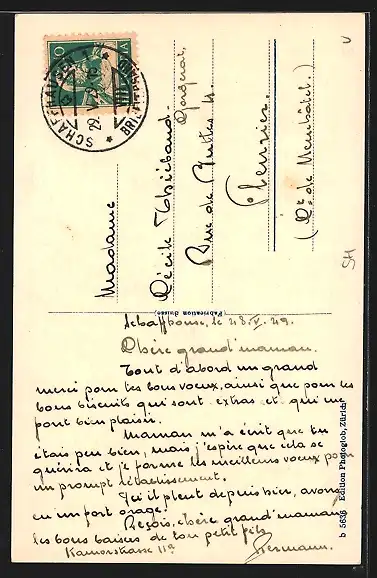 HELVETIA
10
SCHAFFHAUSEN 1
BRIEFVERSAND
29. V. 29. 15
Madame
Cécile Thiébaud-
Rue de Buttes 4.
Fleurier.
(Ct de Neuchâtel.)
SH
(Fabrication Suisse)
b 5636 Edition Photoglob, Zürich
Schaffhouse, le 28. V. 29.
Chère grand'maman.
Tout d'abord un grand
merci pour tes bons voeux, ainsi que pour les
bons biscuits qui sont extras et qui me
font bien plaisir.
Maman m'a écrit que tu
étais peu bien, mais j'espère que cela se
guérira et je forme les meilleurs voeux pour
un prompt rétablissement.
Ici il pleut depuis hier, avons
eu un fort orage.
Reçois, chère grand'maman
les bons baisers de ton petit fils
Hermann.
Kamorstrasse 11a